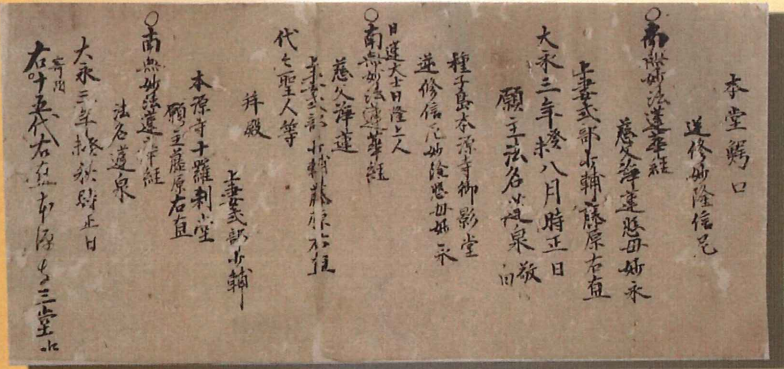 本堂鰐口
逆修妙隆信尼
○南無妙法蓮華経
慈父浄蓮悲母妙永
上妻式部少輔藤原右直
大永三年癸未八月時正日
願主法名蓮泉敬白
種子島本源寺御影堂
逆修信尼妙隆悲母妙永
日蓮大士日隆上人
○南無妙法蓮華経
慈父浄蓮
上妻式部少輔藤原右直
代々聖人等
拝殿
上妻式部少輔
本源寺十羅刹堂
願主藤原右直
○南無妙法蓮華経
法名蓮泉
大永三年癸未秋時正日
寄附
右十五代右直本源寺三堂